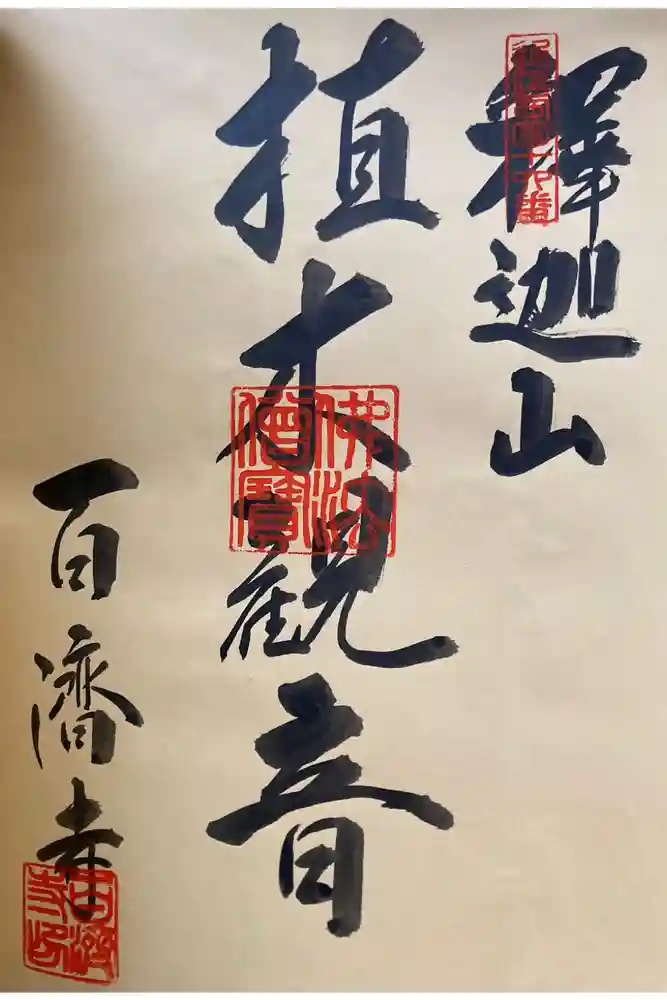 釋迦山
植木觀音
百濟寺
佛法僧寶
百濟寺印